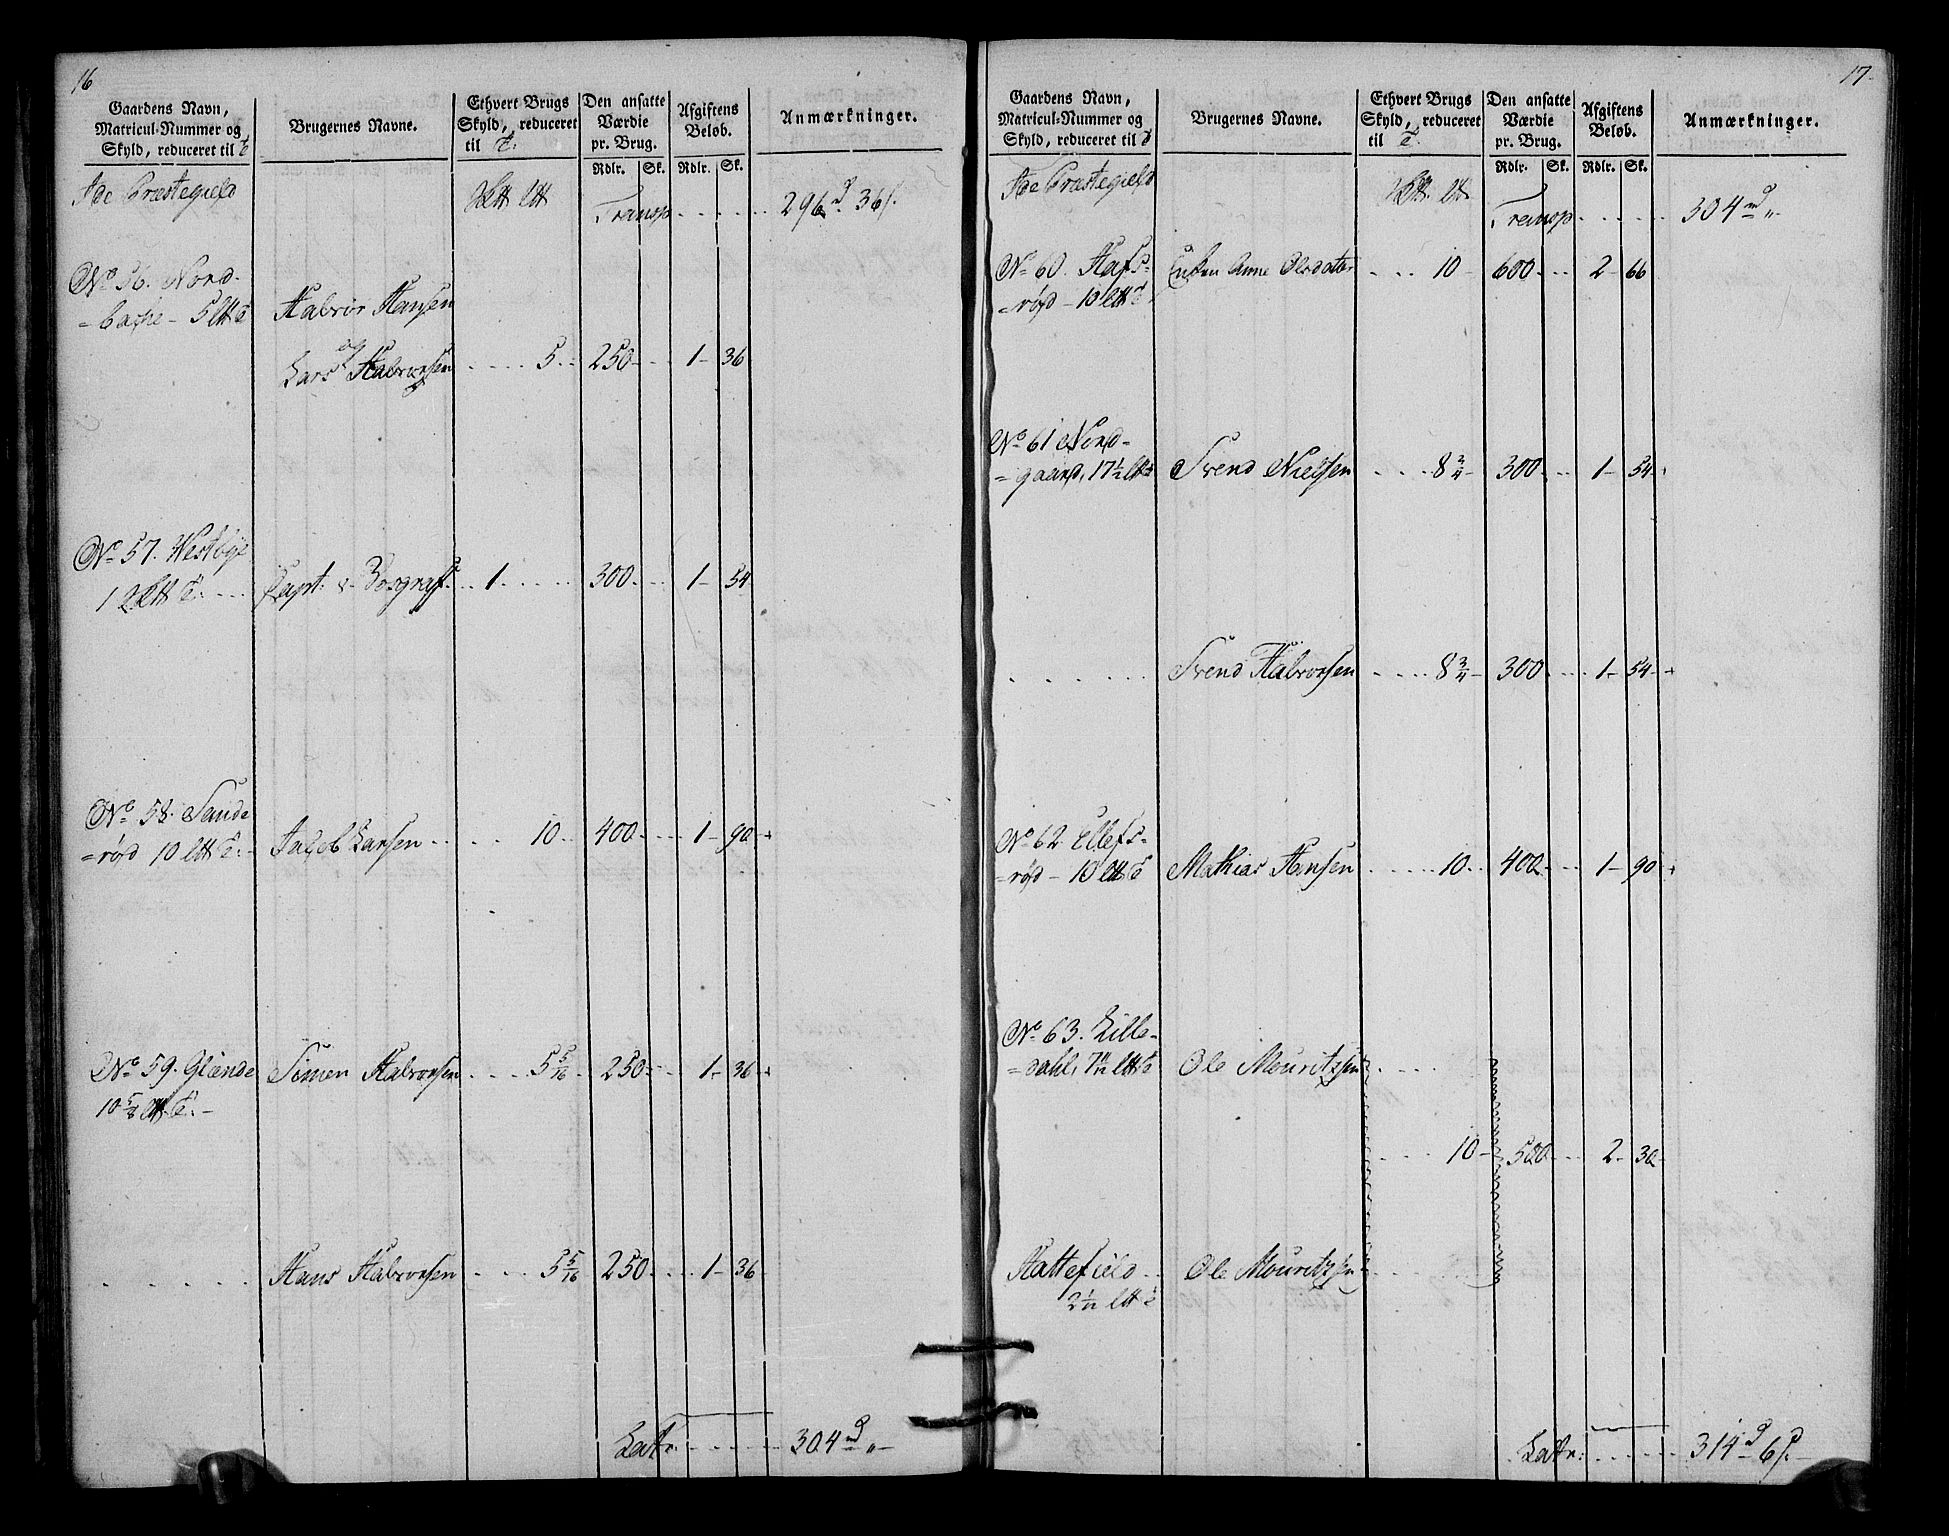 16
Gaardens Navn,
Matricul-Nummer og
Skyld, reduceret til
Brugernes Navne.
Ethvert Brugs
Skyld, reduceret
til
Den ansatte
Værdie
pr. Brug.
Rdlr. Sk.
Afgiftens
Beløb.
Rdlr. Sk.
Anmærkninger.
Ide Præstegield
Transp. . . . . 296 36
No 56. Nord-
=backe - 5 Halvor Hansen
og
Lars Halvorsen . . . . 5. 250 . . 1 - 36
No 57. Westbye
1 Capt. v. . . 1 . . . . 300 . . 1 - 54
No 58. Sande
=rød 10 Jacob Larsen . . . . 10. 400 . . . 1 - 90
No 59. Glænde Simen Halvorsen . . . 5 5/16 250 . . 1 - 36
10 5/8
. . . . . Hans Halvorsen . . . 5 5/16 250 . . . 1 - 36
Latr. . . . . 304
17
Gaardens Navn,
Matricul-Nummer og
Skyld, reduceret til
Brugernes Navne.
Ethvert Brugs
Skyld, reduceret
til
Den ansatte
Værdie
pr. Brug.
Rdlr. Sk.
Afgiftens
Beløb.
Rdlr. Sk.
Anmærkninger.
Ide Præstegield
Transp . . . . 304
No 60. Hafs-
=rød - 10 Enken Anne Olsdatter . . . 10 - 600 . . 2 - 66
No 61 Nord-
=gaard, 17 1/2 Svend Nielsen . . . . 8 3/4 300 . . 1 - 54
. . . . . Svend Halvorsen . . . . 8 3/4 - 300 . . . 1 - 54
No 62 Ellefs-
=rød - 10 Mathias Hansen . . . . . 10. 400 . . 1 - 90
No 63. Lille-
=dahl, 7 11/12 Ole Mouritzsen . . . .
. . . . 10 - 500 . . 2 - 30
Hattefield . . Ole Mouritzsen . . . .
2 1/12
Latr: . . . . 314 6